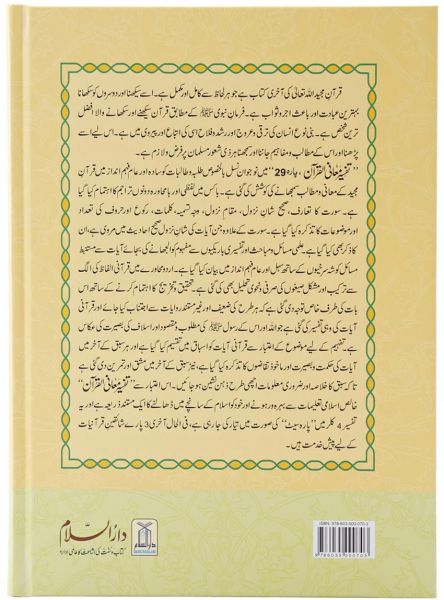 قرآنِ مجید اللہ تعالیٰ کی آخری کتاب ہے جو ہر لحاظ سے کامل اور مکمل ہے۔ اسے سیکھنا اور دوسروں کو سکھانا
بہترین عبادت اور باعث اجر و ثواب ہے۔ فرمان نبوی ﷺ کے مطابق قرآن سیکھنے اور سکھانے والا افضل
ترین شخص ہے۔ بنی نوع انسان کی ترقی و عروج اور رشد و فلاح اسی کی اتباع اور پیروی میں ہے۔ اس لیے اسے
پڑھنا اور اس کے مطالب و مفاہیم جاننا اور سمجھنا ہر ذی شعور مسلمان پر فرض و لازم ہے۔
"تفسیر معانی القرآن، پارہ 29" میں نوجوان نسل بالخصوص طلبہ و طالبات کو سادہ اور عام فہم انداز میں قرآنِ
مجید کے معانی و مطالب سمجھانے کی کوشش کی گئی ہے۔ جس میں لفظی اور بامحاورہ دونوں تراجم کا اہتمام کیا گیا
ہے۔ سورت کا تعارف، صحیح شانِ نزول، مقام نزول، وجہ تسمیہ، کلمات، رکوع اور حروف کی تعداد
اور موضوعات کا تذکرہ کیا گیا ہے۔ سورت کے علاوہ جن آیات کی شانِ نزول صحیح احادیث میں مروی ہے، ان
کا ذکر بھی کیا گیا ہے۔ علمی مسائل و مباحث اور تفسیری باریکیوں سے مفہوم کو الجھانے کی بجائے آیات سے مستنبط
مسائل کو شہ سرخیوں کے ساتھ سہل اور عام فہم انداز میں بیان کیا گیا ہے۔ اردو محاورے میں قرآنی الفاظ کی الگ
سے ترکیب اور مشکل صیغوں کی صرفی و نحوی تحلیل بھی کی گئی ہے۔ تحقیق و تخریج کا اہتمام کرنے کے ساتھ اس
بات کی طرف خاص توجہ دی گئی ہے کہ ہر طرح کی ضعیف اور غیر مستند روایات سے اجتناب کیا جائے اور قرآنی
آیات کی وہی تفسیر کی گئی ہے جو اللہ اور اس کے رسول ﷺ کی مطلوب و مقصود اور اسلاف کی بصیرت کی عکاس
ہے۔ تفہیم کے لیے موضوع کے اعتبار سے قرآنی آیات کو اسباق میں تقسیم کیا گیا ہے اور ہر سبق کے آخر میں
آیات کی حکمت و بصیرت اور ماخوذ تقاضوں کا تذکرہ کیا گیا ہے، نیز سبق کے آخر میں مشق اور تمرین دی گئی ہے
تاکہ سبق کا خلاصہ اور ضروری معلومات اچھی طرح ذہن نشین ہو جائیں۔ اس اعتبار سے "تفسیر معانی القرآن"
خالص اسلامی تعلیمات سے بہرہ ور ہونے اور خود کو اسلام کے سانچے میں ڈھالنے کا ایک مستند ذریعہ ہے اور یہ
تفسیر 4 کلر میں "پارہ سیٹ" کی صورت میں تیار کی جا رہی ہے، فی الحال آخری 3 پارے شائقین قرآنیات
کے لیے پیش خدمت ہیں۔
ISBN: 978-603-500-070-3
9 786035 000703
دارالسلام
کتاب و سنت کی اشاعت کا عالمی ادارہ
دارالسلام
DARUSSALAM